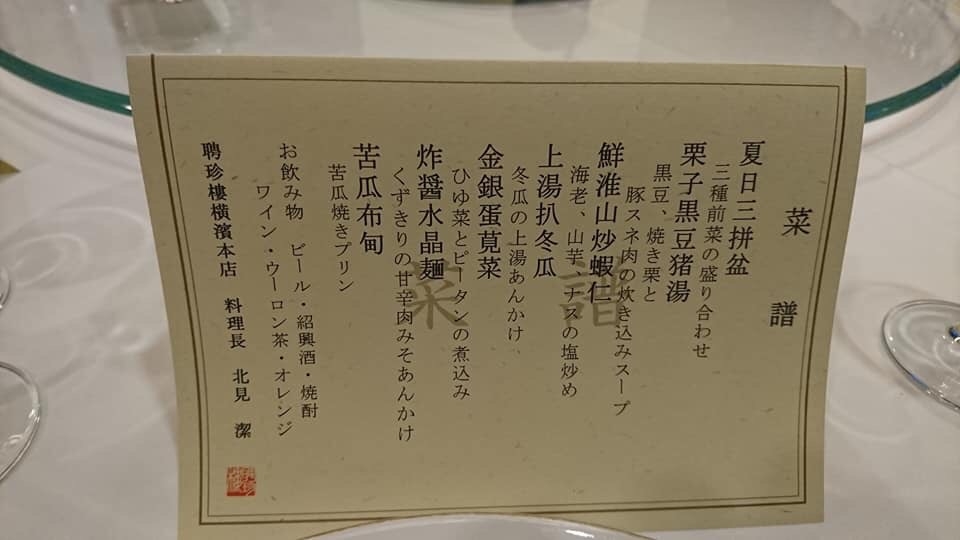 菜譜
夏日三拼盆
三種前菜の盛り合わせ
栗子黒豆猪湯
黒豆、焼き栗と
豚スネ肉の炊き込みスープ
鮮淮山炒蝦仁
海老、山芋、ナスの塩炒め
上湯扒冬瓜
冬瓜の上湯あんかけ、
金銀蛋莧菜
ひゆ菜とピータンの煮込み
炸醤水晶麺
くずきりの甘辛肉みそあんかけ
苦瓜布甸
苦瓜焼きプリン
お飲み物 ビール・紹興酒・焼酎
ワイン・ウーロン茶・オレンジ
聘珍樓横濱本店 料理長 北見 潔
菜譜